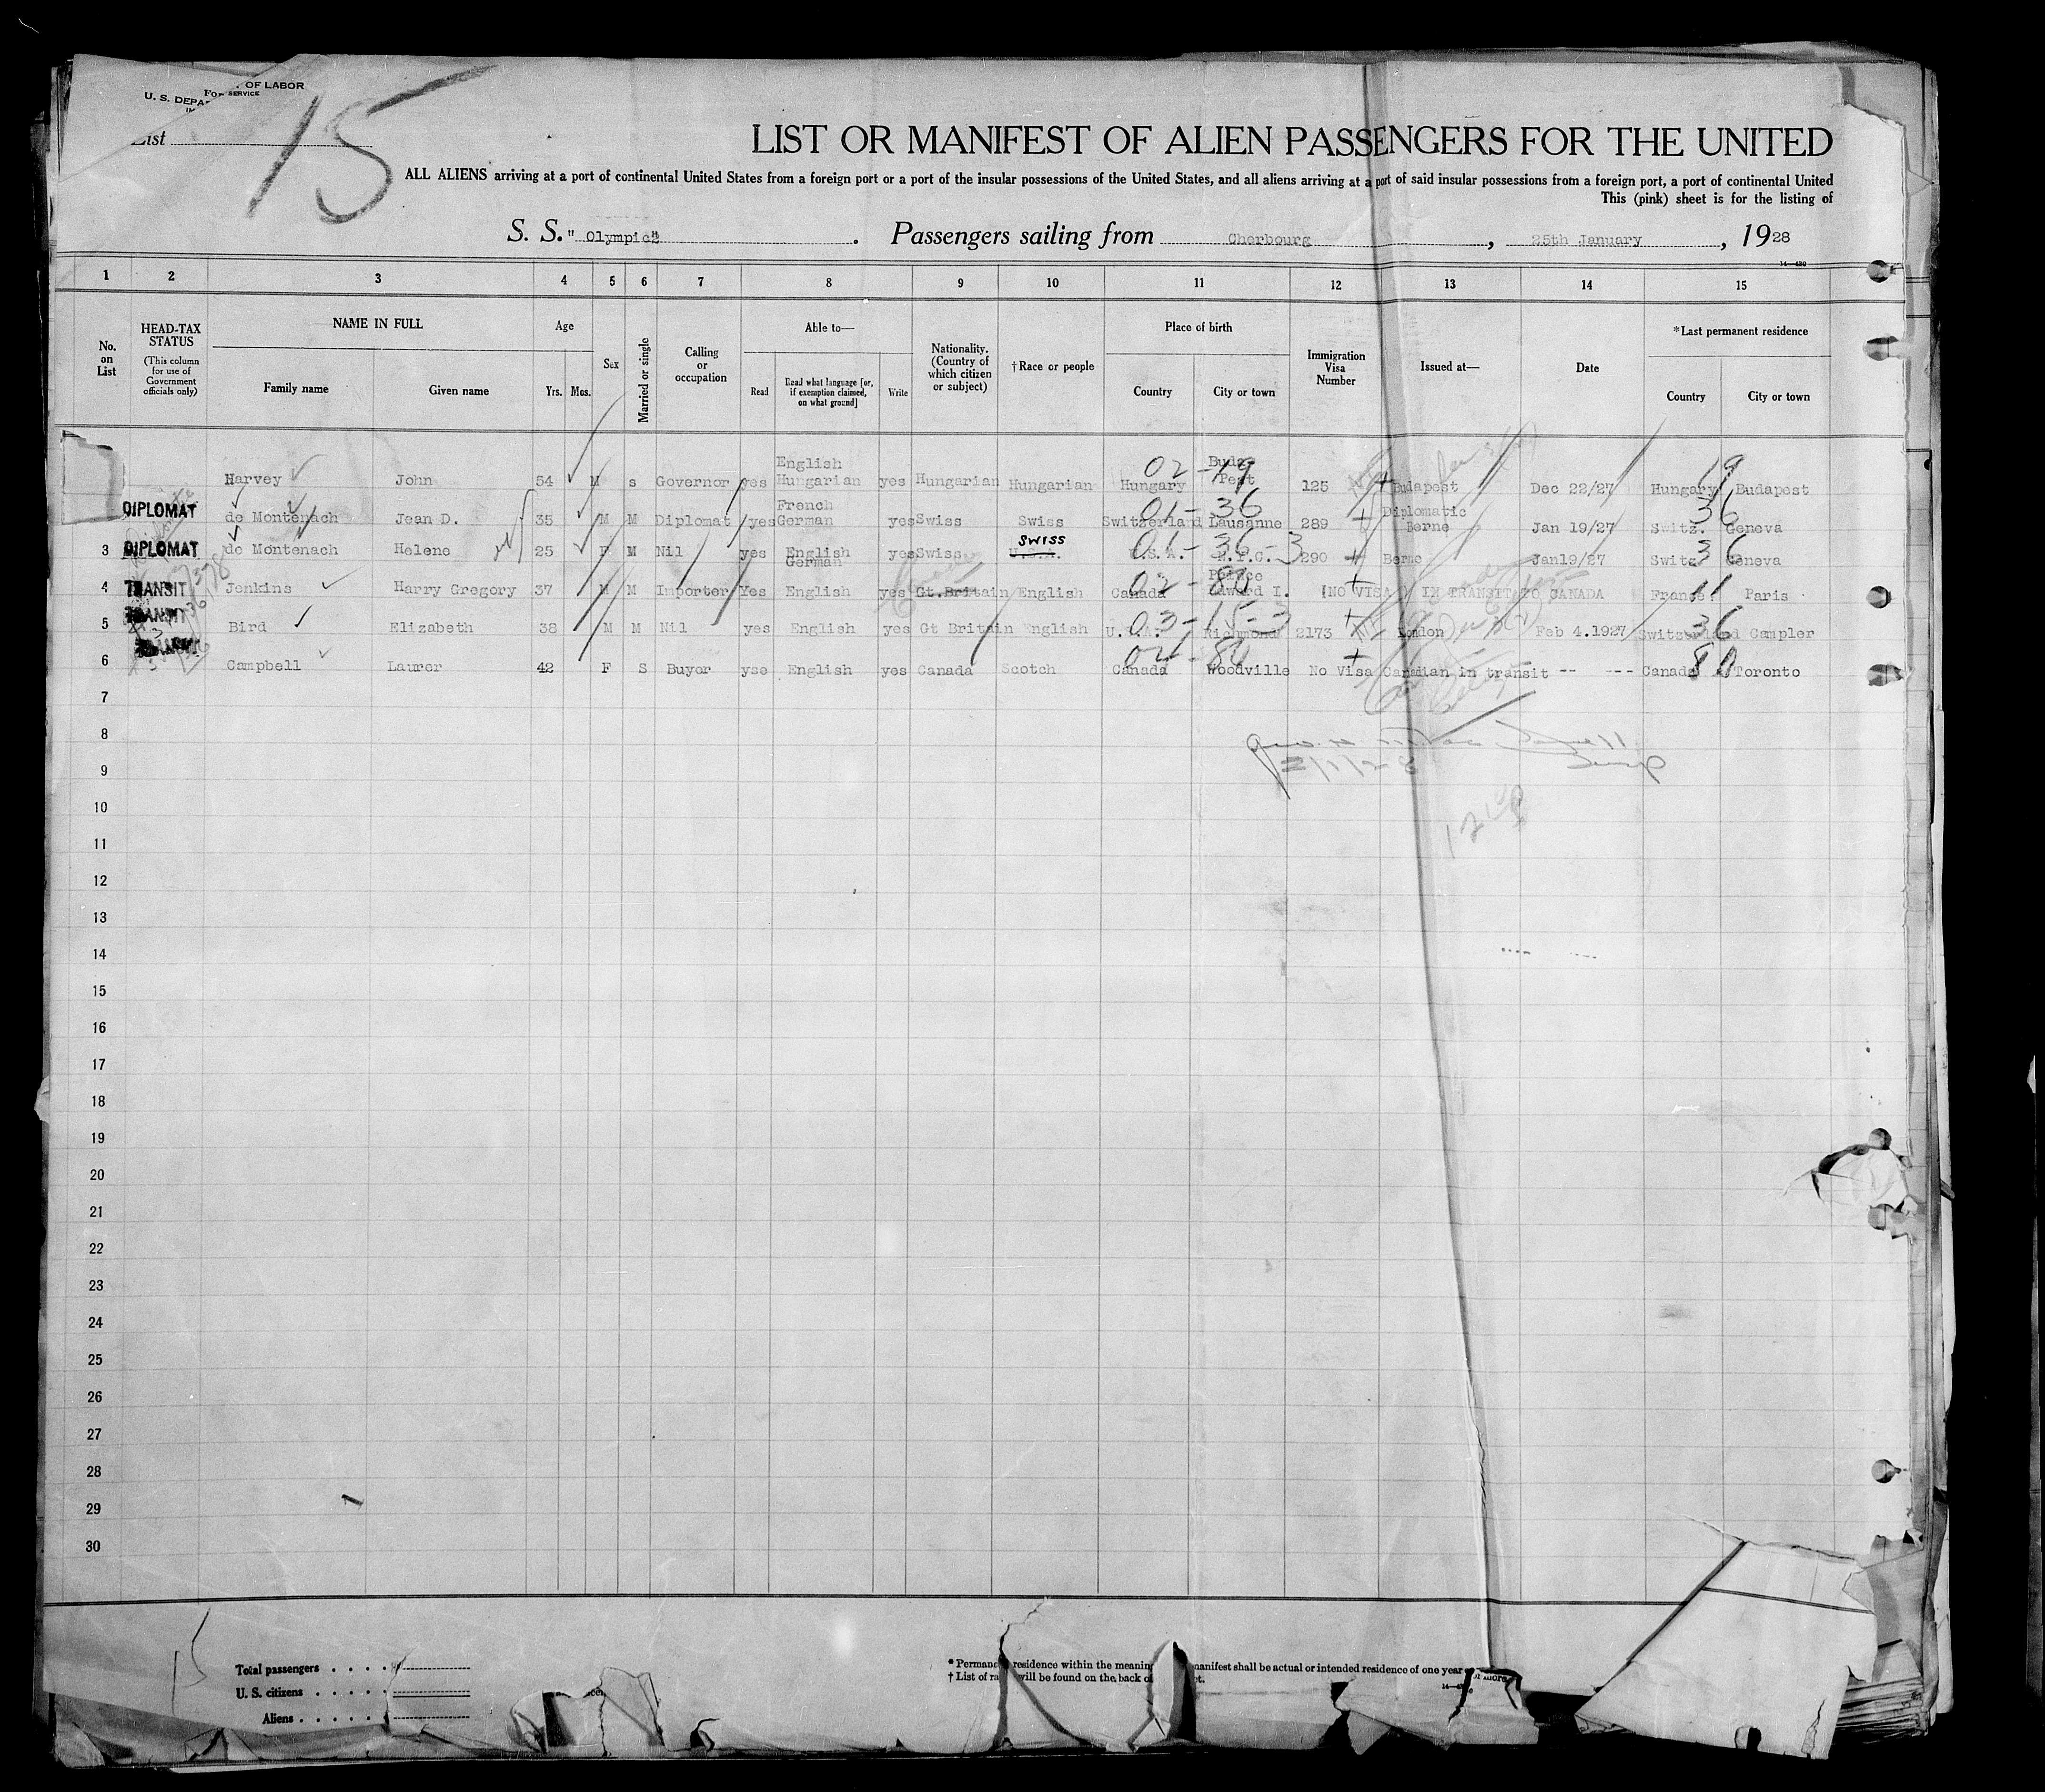 U. S. DEPA OF LABOR
SERVICE
List 15
LIST OR MANIFEST OF ALIEN PASSENGERS FOR THE UNITED
ALL ALIENS arriving at a port of continental United States from a foreign port or a port of the insular possessions of the United States, and all aliens arriving at a port of said insular possessions from a foreign port, a port of continental United
This (pink) sheet is for the listing of
S. S. "Olympic" . Passengers sailing from Cherbourg , 25th January , 1928
1 2 3 4 5 6 7 8 9 10 11 12 13 14 15
No. on List
HEAD-TAX STATUS (This column for use of Government officials only)
NAME IN FULL Family name Given name
Age Yrs. Mos.
Sex
Married or single
Calling or occupation
Able to— Read Read what language [or, if exemption claimed, on what ground] Write
Nationality. (Country of which citizen or subject)
†Race or people
Place of birth Country City or town
Immigration Visa Number
Issued at—
Date
*Last permanent residence Country City or town
Harvey John 54 M s Governor yes English Hungarian yes Hungarian Hungarian Hungary Buda Pest 02-19 125 Budapest Dec 22/27 Hungary 19 Budapest
DIPLOMAT de Montenach Jean D. 35 M M Diplomat yes French German yes Swiss Swiss Switzerland Lausanne 01-36 289 Diplomatic Berne Jan 19/27 Switz. 36 Geneva
3 DIPLOMAT de Montenach Helene 25 F M Nil yes English German yes Swiss SWISS U.S.A. U.S.A. 01-36-3 290 Berne Jan19/27 Switz 36 Geneva
4 TRANSIT Jenkins Harry Gregory 37 M M Importer Yes English yes Gt.Britain English Canada Prince Edward I. 02-80 (NO VISA) IN TRANSIT TO CANADA France 11 Paris
TRANSIT
5 Bird Elizabeth 38 M M Nil yes English yes Gt Britain English U.S.A. Richmond 03-15-3 2173 London Feb 4.1927 Switzerland 36 Campler
TRANSIT
6 Campbell Laurer 42 F S Buyer yse English yes Canada Scotch Canada Woodville 02-80 No Visa Canadian in transit -- --- Canada 80 Toronto
7
8
2/1/28
9
10
11
12
13
14
15
16
17
18
19
20
21
22
23
24
25
26
27
28
29
30
15
Total passengers . . . .
U. S. citizens . . . . .
Aliens . . . . .
* Permanent residence within the meaning manifest shall be actual or intended residence of one year or more.
† List of ra will be found on the back of